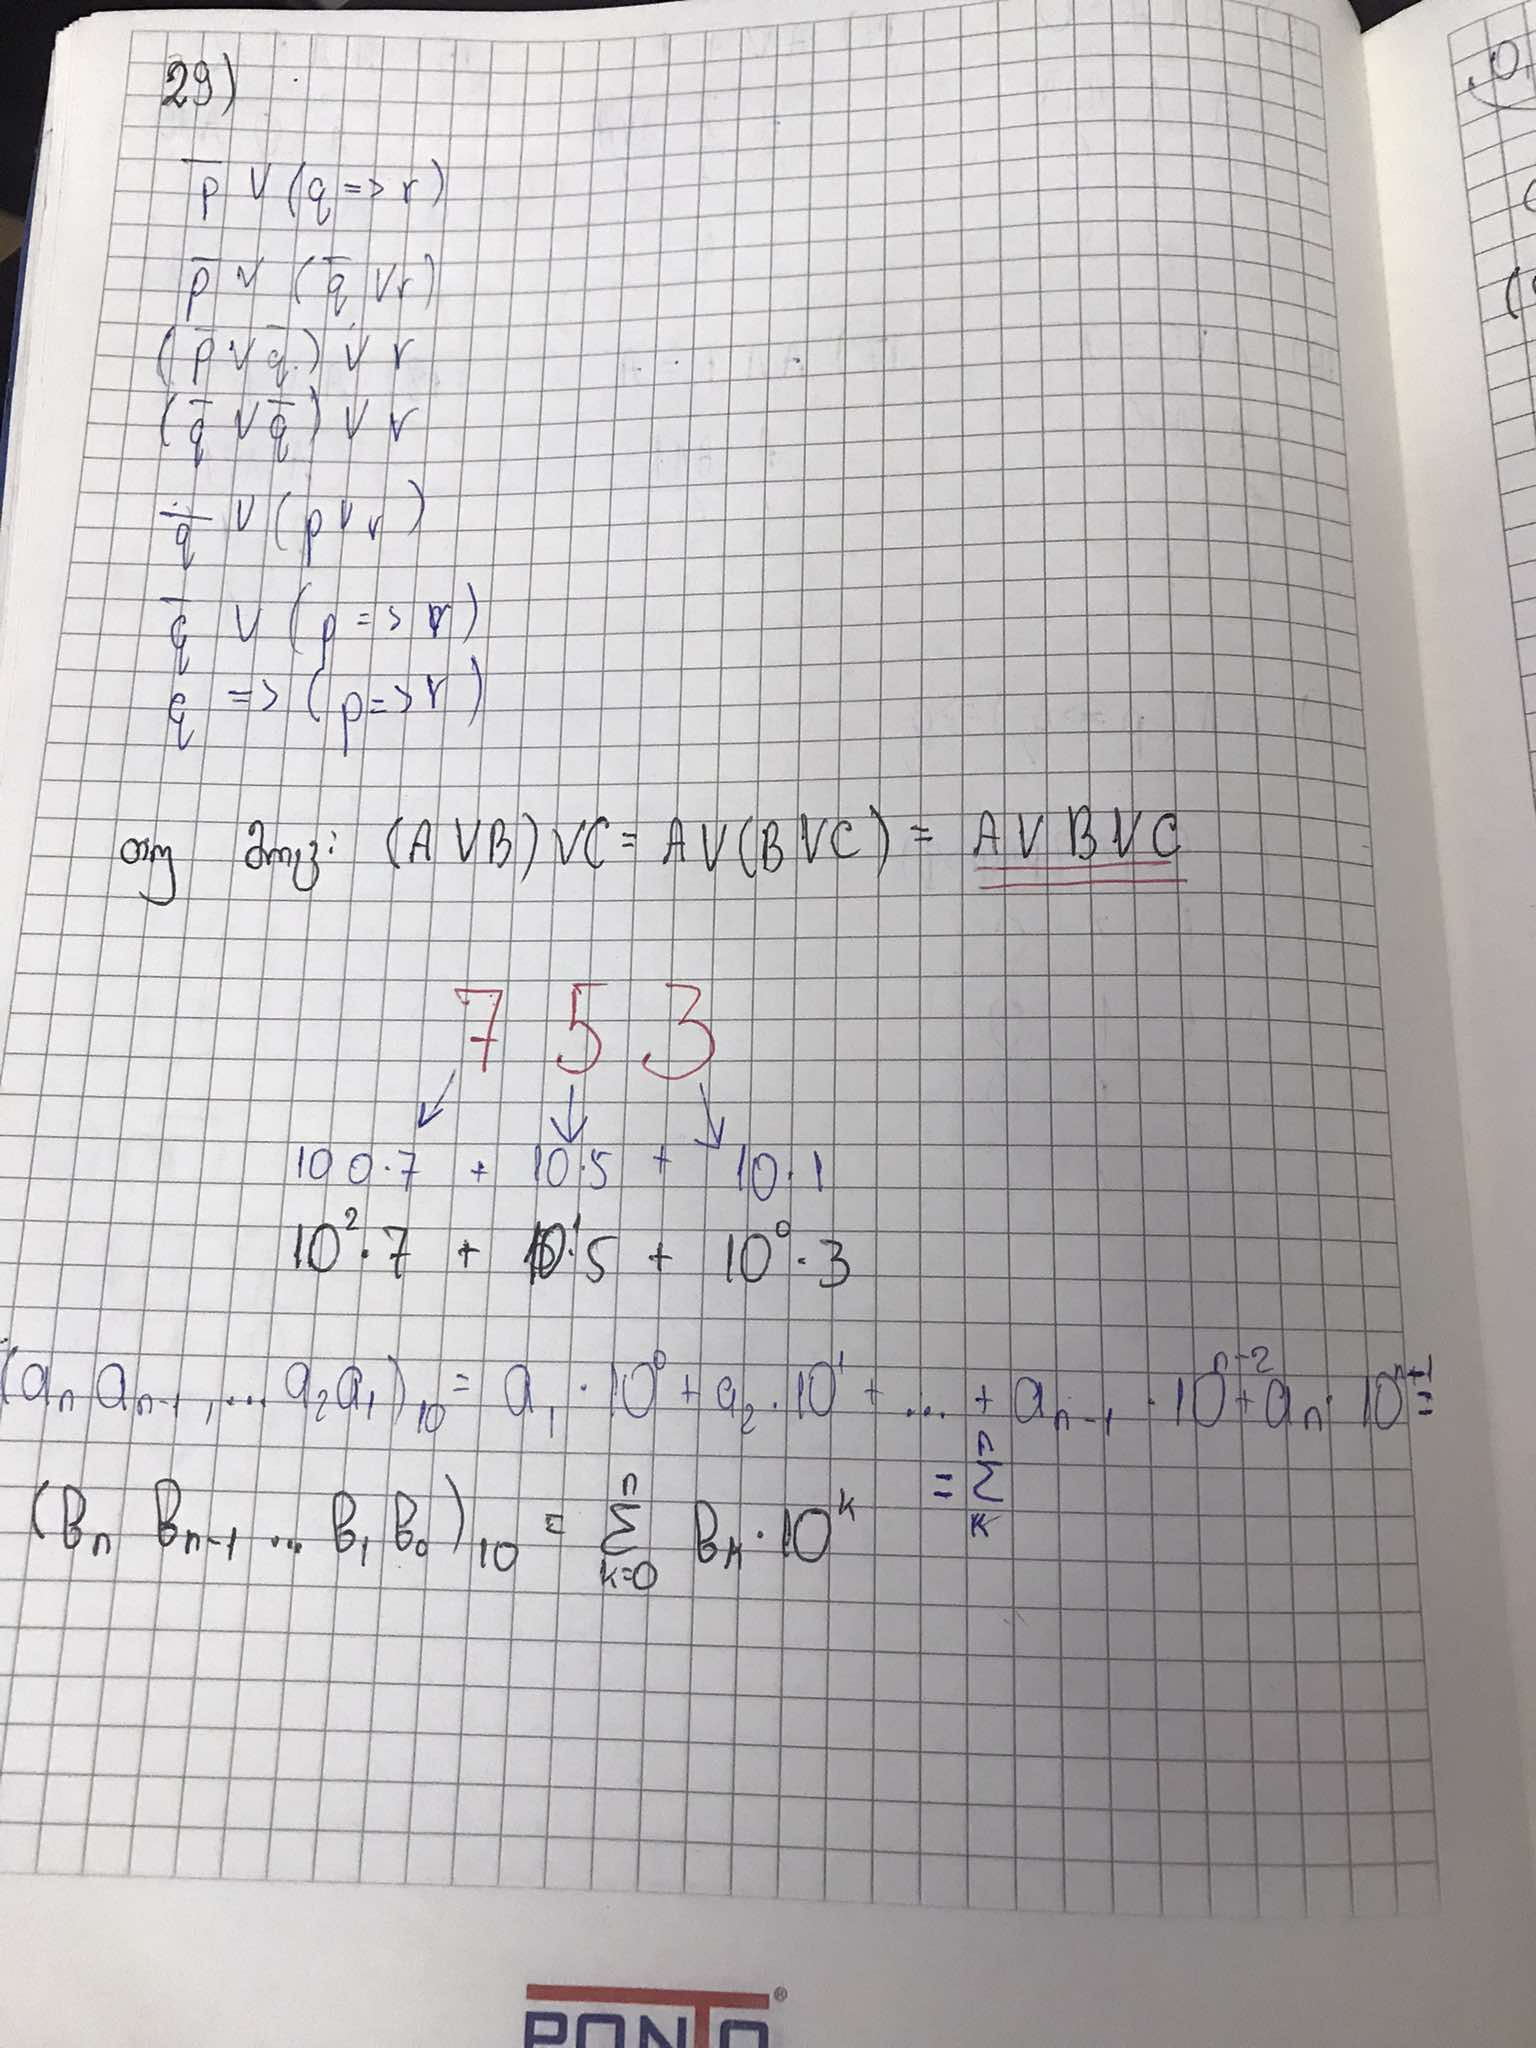 29)
p̅ ∨ (q => r)
p̅ ∨ (q̅ ∨ r)
(p̅ ∨ q̅) ∨ r
(q̅ ∨ q̅) ∨ r
q̅ ∨ (p ∨ r)
q̅ ∨ (p => r)
q => (p => r)
(A ∨ B) ∨ C = A ∨ (B ∨ C) = A ∨ B ∨ C
7 5 3
100·7 + 10·5 + 10·1
10²·7 + 10¹·5 + 10⁰·3
(aₙ aₙ₋₁, ... a₂a₁)₁₀ = a₁·10⁰ + a₂·10¹ + ... + aₙ₋₁·10ⁿ⁻² + aₙ·10ⁿ⁻¹ =
= ∑ⁿₖ
(Bₙ Bₙ₋₁ ... B₁B₀)₁₀ = ∑ⁿₖ₌₀ Bₖ·10ᵏ
PONTO®